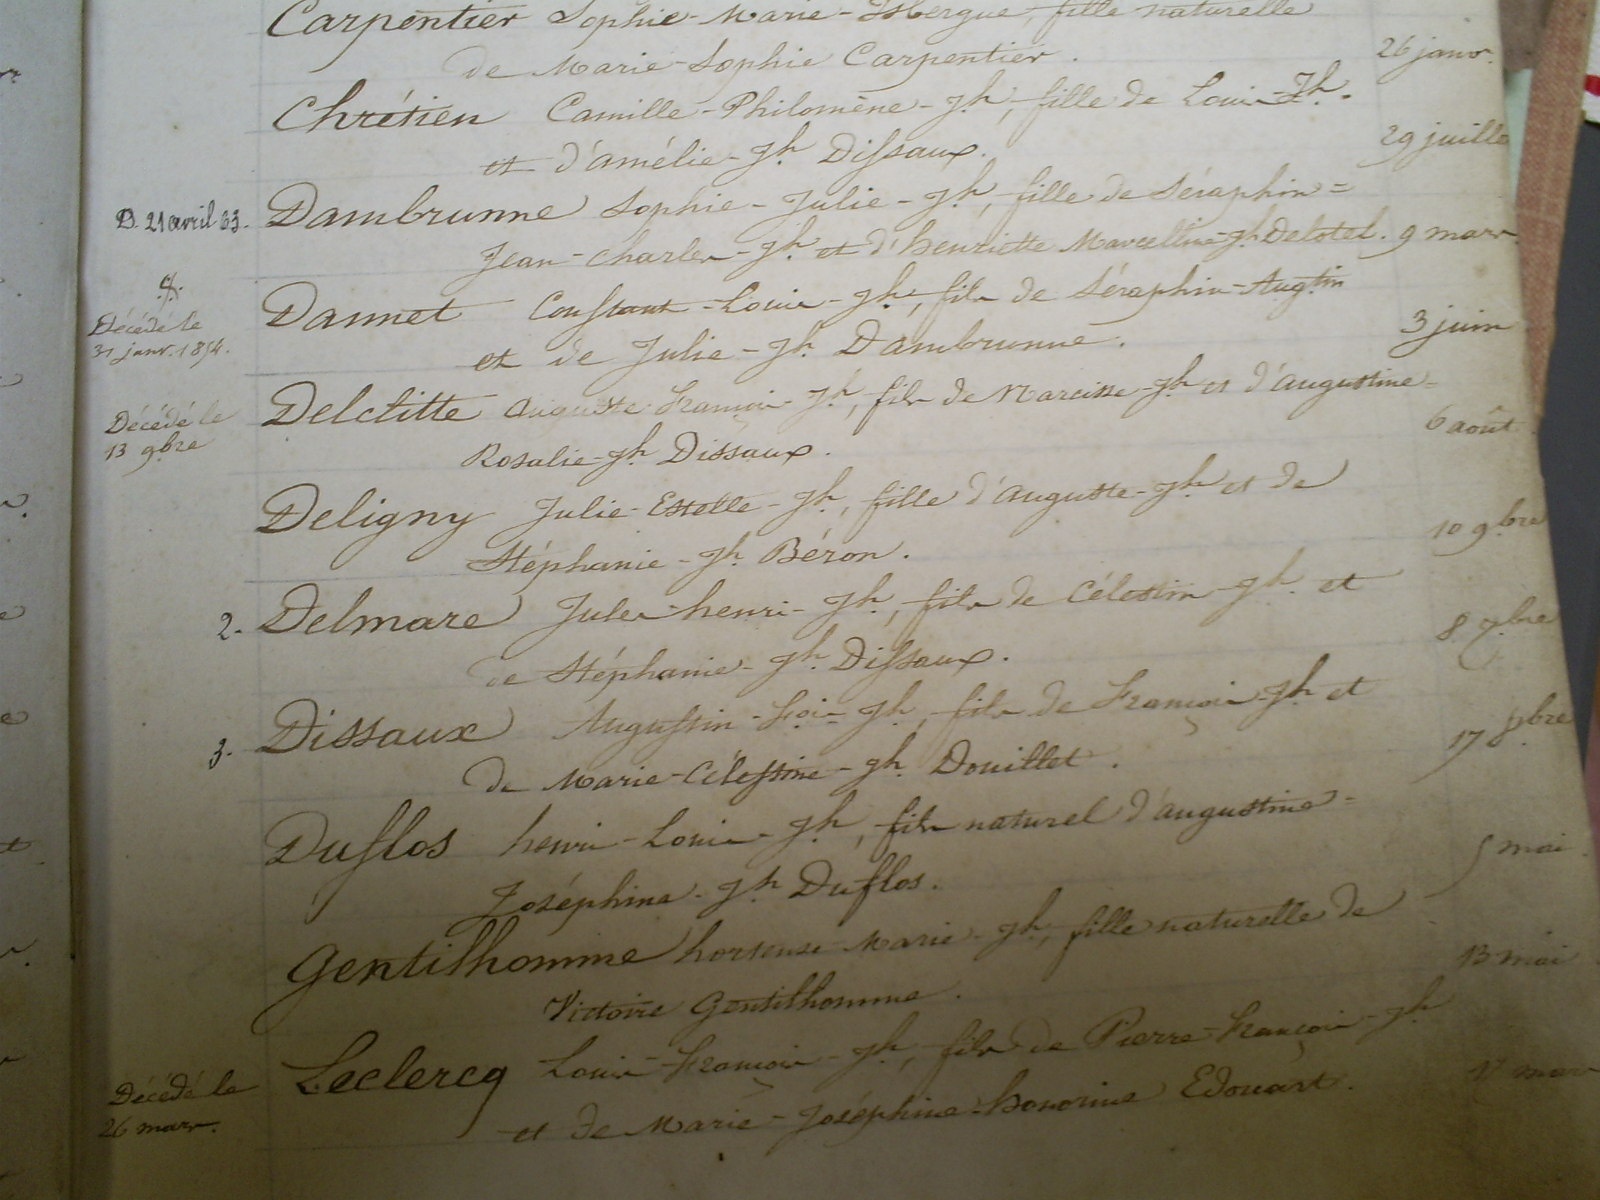 Carpentier Sophie-Marie-Isbergue, fille naturelle
de Marie-Sophie Carpentier. 26 janv.
Chrétien Camille-Philomène-Jh, fille de Louis-Jh.
et d'amélie-Jh Dissaux. 29 juill
D. 21 avril 63. Dambrunne Sophie-Julie-Jh, fille de Séraphin=
Jean-Charles-Jh et d'henriette Marcelline-Jh Delotel. 9 mars
Dannet Constant-Louis-Jh, fils de Séraphin-Augtin
Décédé le
31 janv. 1854. et de Julie-Jh Dambrunne. 3 juin
Delétitte Auguste François-Jh, fils de Narcisse-Jh et d'augustine=
Décédé le
13 9bre Rosalie-Jh Dissaux. 6 août
Deligny Julie-Estelle-Jh, fille d'auguste-Jh et de
Stéphanie-Jh Béron. 10 9bre
2. Delmare Jules-henri-Jh, fils de Célestin-Jh et
de Stéphanie-Jh Dissaux. 8 7bre
3. Dissaux Augustin-fois-Jh, fils de François-Jh et
de Marie-Célestine-Jh Douillet. 17 8bre
Duflos henri-Louis-Jh, fils naturel d'augustine=
Joséphine-Jh Duflos. 5 mai
Gentilhomme hortense-Marie-Jh, fille naturelle de
Victoire Gentilhomme. 13 mai
Leclercq Louis-François-Jh, fils de Pierre-François-Jh
Décédé le
26 mars. et de Marie-Joséphine-honorine Edouart. mars